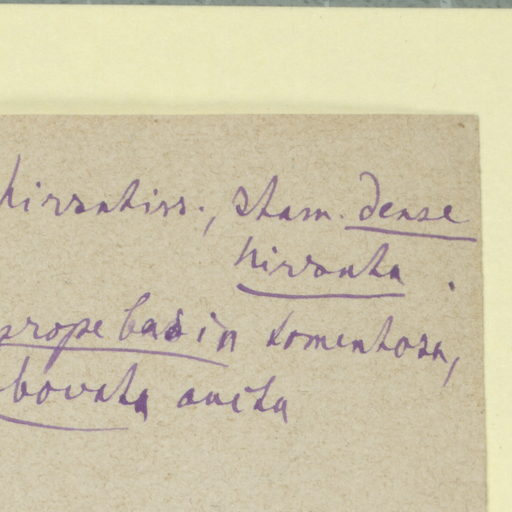 hirsutiss., stam. dense
hirsuta.
prope basin tomentosa,
obovata aucta